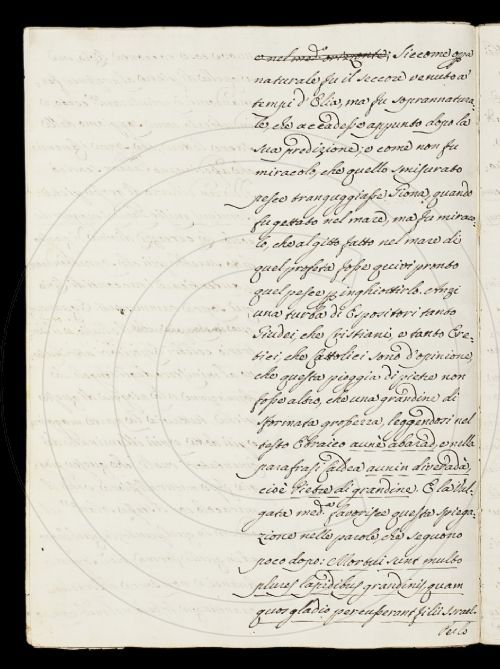 e nel med.° orizonte; Siccome opa
naturale fu il seccore venuto a'
tempi d'Elia, ma fu soprannatura-
le, che accadesse appunto dopo la
sua predizione; e come non fu
miracolo, che quello smisurato
pesce tranguggiasse Giona, quando
fu gettato nel mare, ma fu miraco-
lo, che al gito fatto nel mare di
quel profeta fosse quivi pronto
quel pesce p inghiottirlo. Anzi
una turba di Espositori tanto
Giudei, che Cristiani, e tanto Ere-
tici, che Cattolici sono d'opinione,
che questa pioggia di pietre non
fosse altro, che una grandine di
sformata grossezza, leggendosi nel
testo Ebraico aune abarad, e nella
parafrasi Caldea aunin diverada,
cioè Pietre di grandine. E la Vul-
gata med.ª favorisce questa spiega-
zione nelle parole, che seguono
poco dopo: Mortui sunt multo
plures lapidibus grandinis, quam
quos gladio percusserant filii Israel.